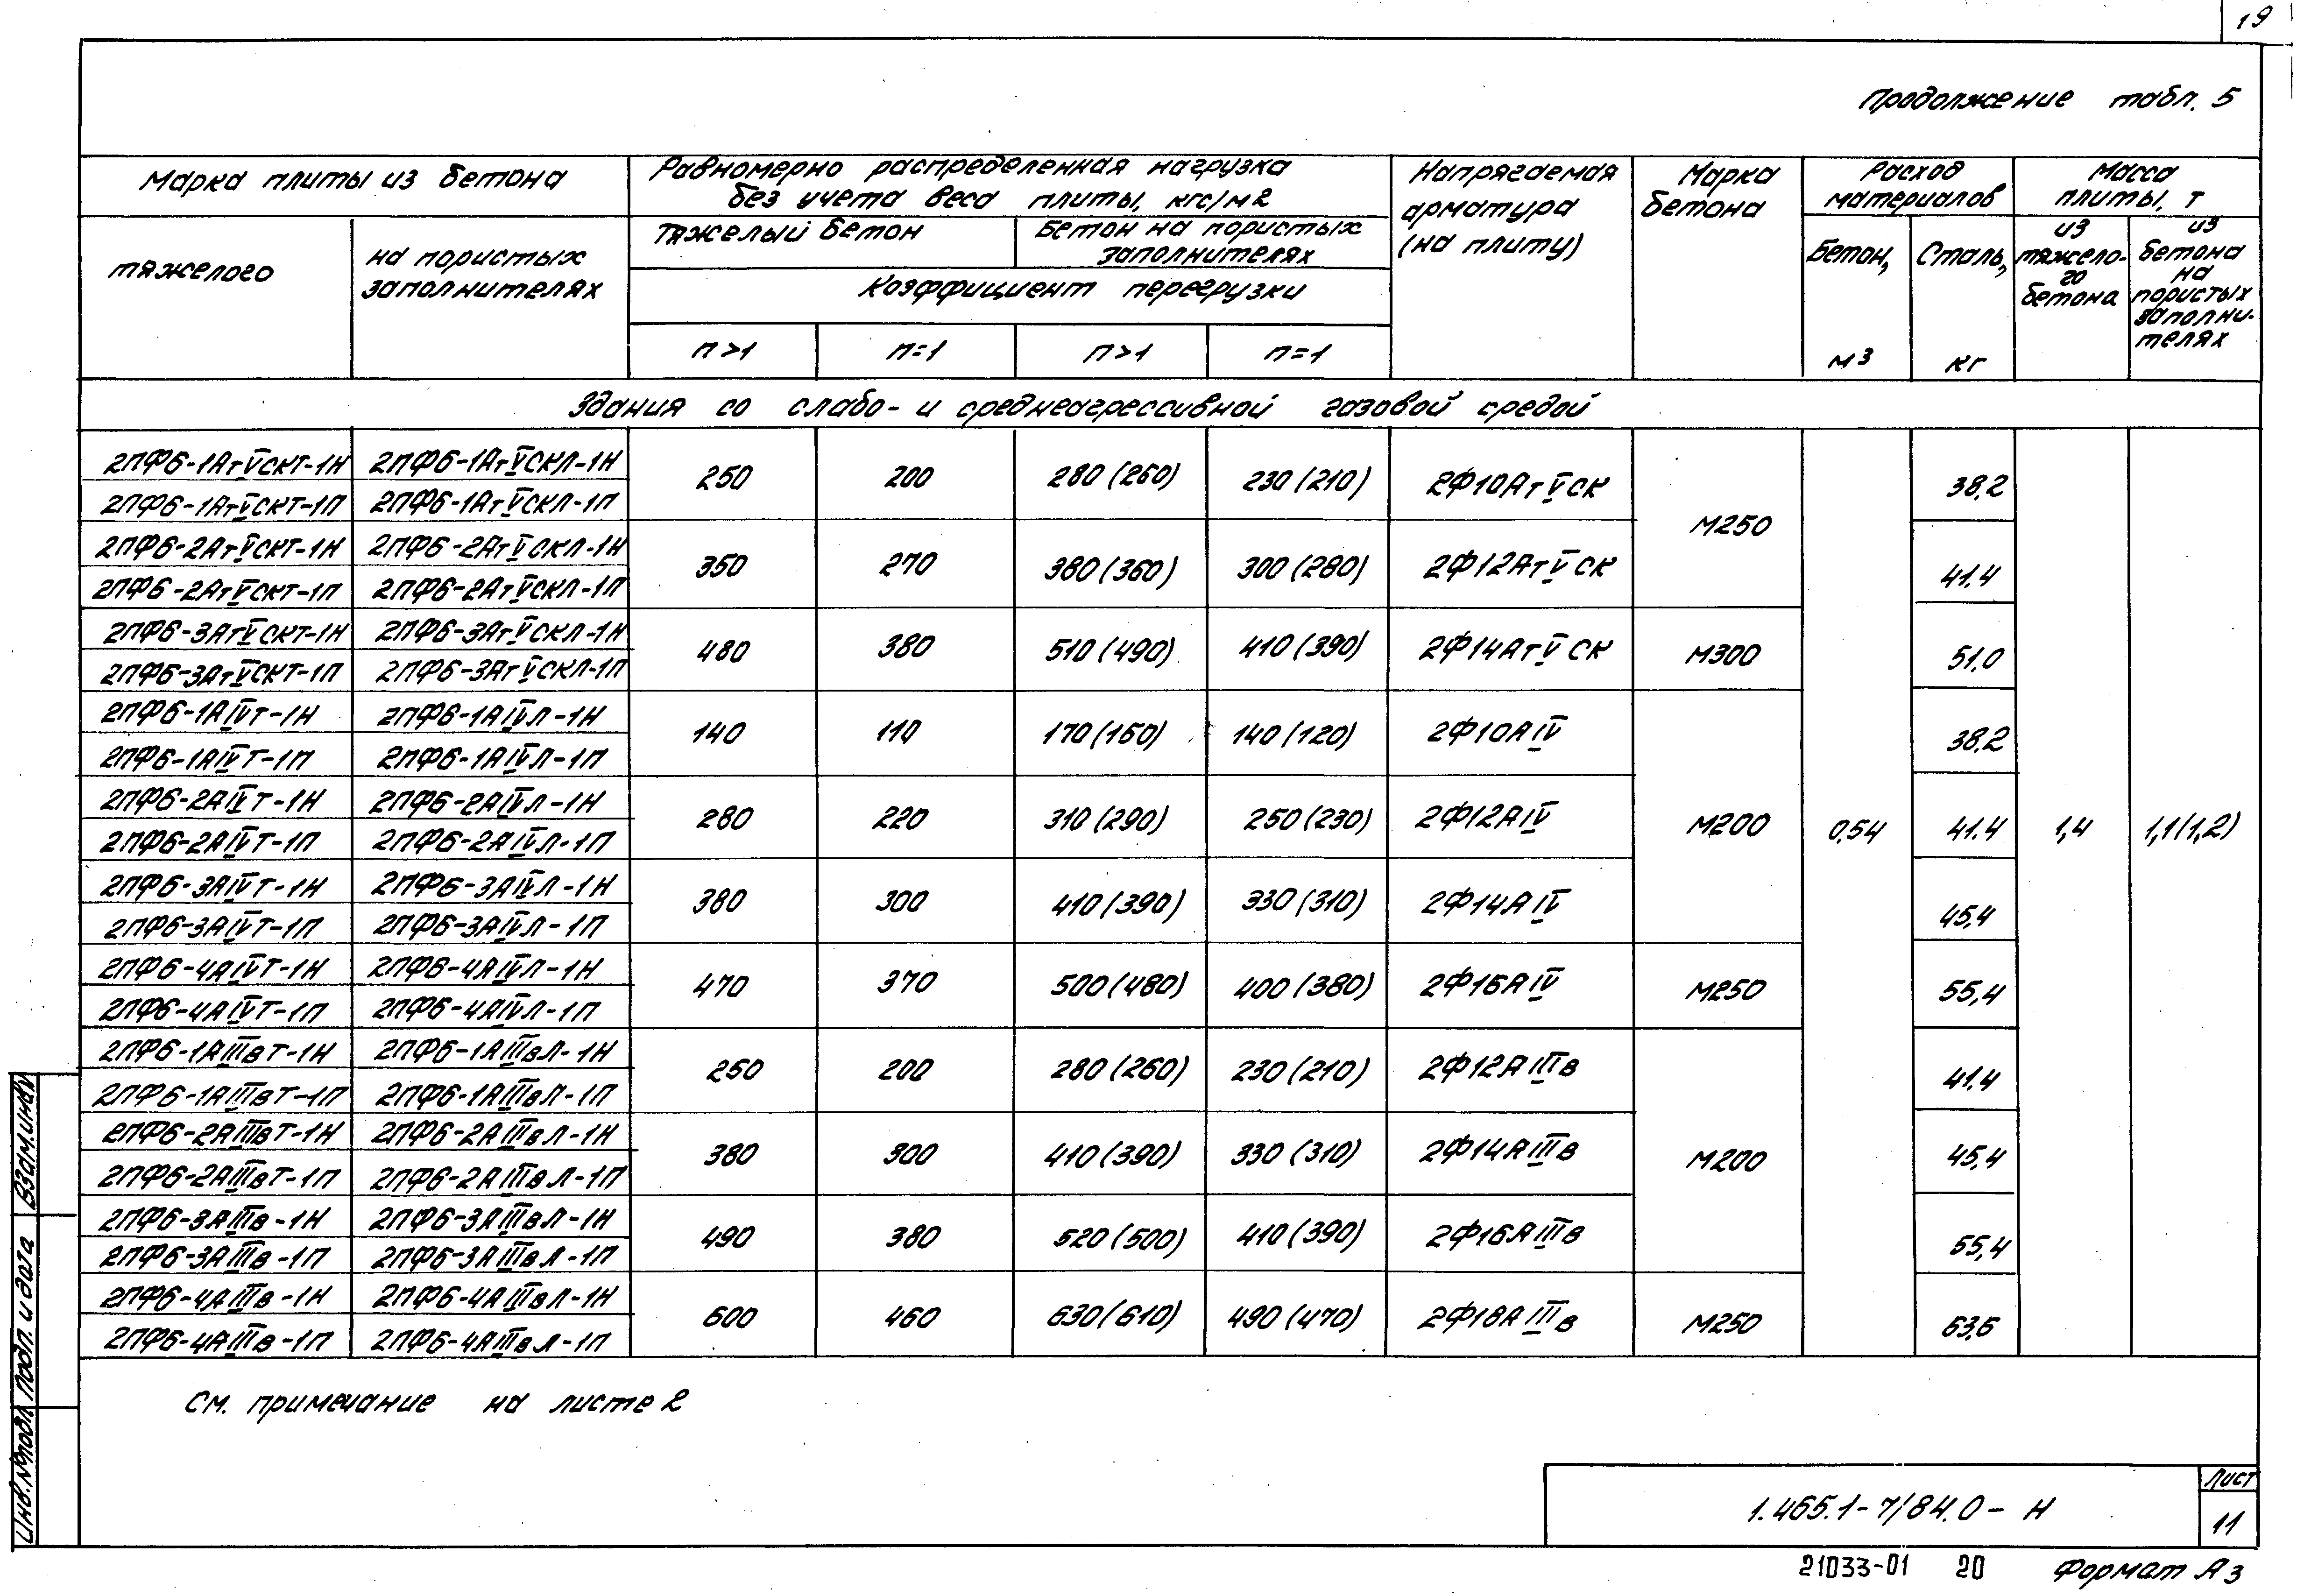 19
Продолжение табл. 5
Марка плиты из бетона
Равномерно распределенная нагрузка
без учета веса плиты, кгс/м2
Напрягаемая
арматура
(на плиту)
Марка
бетона
Расход
материалов
Масса
плиты, т
тяжелого
на пористых
заполнителях
Тяжелый бетон
Бетон на пористых
заполнителях
Коэффициент перегрузки
n>1 n=1 n>1 n=1
Бетон,
м3
Сталь,
кг
из
тяжело-
го
бетона
из
бетона
на
пористых
заполни-
телях
Здания со слабо- и среднеагрессивной газовой средой
2ПФ6-1АтⅤСКТ-1Н 2ПФ6-1АтⅤСКЛ-1Н
2ПФ6-1АтⅤСКТ-1П 2ПФ6-1АтⅤСКЛ-1П
250 200 280(260) 230(210) 2Ф10АтⅤСК 38,2
2ПФ6-2АтⅤСКТ-1Н 2ПФ6-2АтⅤСКЛ-1Н
2ПФ6-2АтⅤСКТ-1П 2ПФ6-2АтⅤСКЛ-1П
350 270 380(360) 300(280) 2Ф12АтⅤСК 41,4
М250
2ПФ6-3АтⅤСКТ-1Н 2ПФ6-3АтⅤСКЛ-1Н
2ПФ6-3АтⅤСКТ-1П 2ПФ6-3АтⅤСКЛ-1П
480 380 510(490) 410(390) 2Ф14АтⅤСК М300 51,0
2ПФ6-1АⅣТ-1Н 2ПФ6-1АⅣЛ-1Н
2ПФ6-1АⅣТ-1П 2ПФ6-1АⅣЛ-1П
140 110 170(150) 140(120) 2Ф10АⅣ 38,2
2ПФ6-2АⅣТ-1Н 2ПФ6-2АⅣЛ-1Н
2ПФ6-2АⅣТ-1П 2ПФ6-2АⅣЛ-1П
280 220 310(290) 250(230) 2Ф12АⅣ М200 0,54 41,4 1,4 1,1(1,2)
2ПФ6-3АⅣТ-1Н 2ПФ6-3АⅣЛ-1Н
2ПФ6-3АⅣТ-1П 2ПФ6-3АⅣЛ-1П
380 300 410(390) 330(310) 2Ф14АⅣ 45,4
2ПФ6-4АⅣТ-1Н 2ПФ6-4АⅣЛ-1Н
2ПФ6-4АⅣТ-1П 2ПФ6-4АⅣЛ-1П
470 370 500(480) 400(380) 2Ф16АⅣ М250 55,4
2ПФ6-1АⅢвТ-1Н 2ПФ6-1АⅢвЛ-1Н
2ПФ6-1АⅢвТ-1П 2ПФ6-1АⅢвЛ-1П
250 200 280(260) 230(210) 2Ф12АⅢв 41,4
2ПФ6-2АⅢвТ-1Н 2ПФ6-2АⅢвЛ-1Н
2ПФ6-2АⅢвТ-1П 2ПФ6-2АⅢвЛ-1П
380 300 410(390) 330(310) 2Ф14АⅢв М200 45,4
2ПФ6-3АⅢв-1Н 2ПФ6-3АⅢвЛ-1Н
2ПФ6-3АⅢв-1П 2ПФ6-3АⅢвЛ-1П
490 380 520(500) 410(390) 2Ф16АⅢв 55,4
2ПФ6-4АⅢв-1Н 2ПФ6-4АⅢвЛ-1Н
2ПФ6-4АⅢв-1П 2ПФ6-4АⅢвЛ-1П
600 460 630(610) 490(470) 2Ф18АⅢв М250 63,6
См. примечание на листе 2
Инв.№подл. Подп. и дата Взам.инв№
1.465.1-7/84.0-Н
Лист
11
21033-01 20 Формат А3